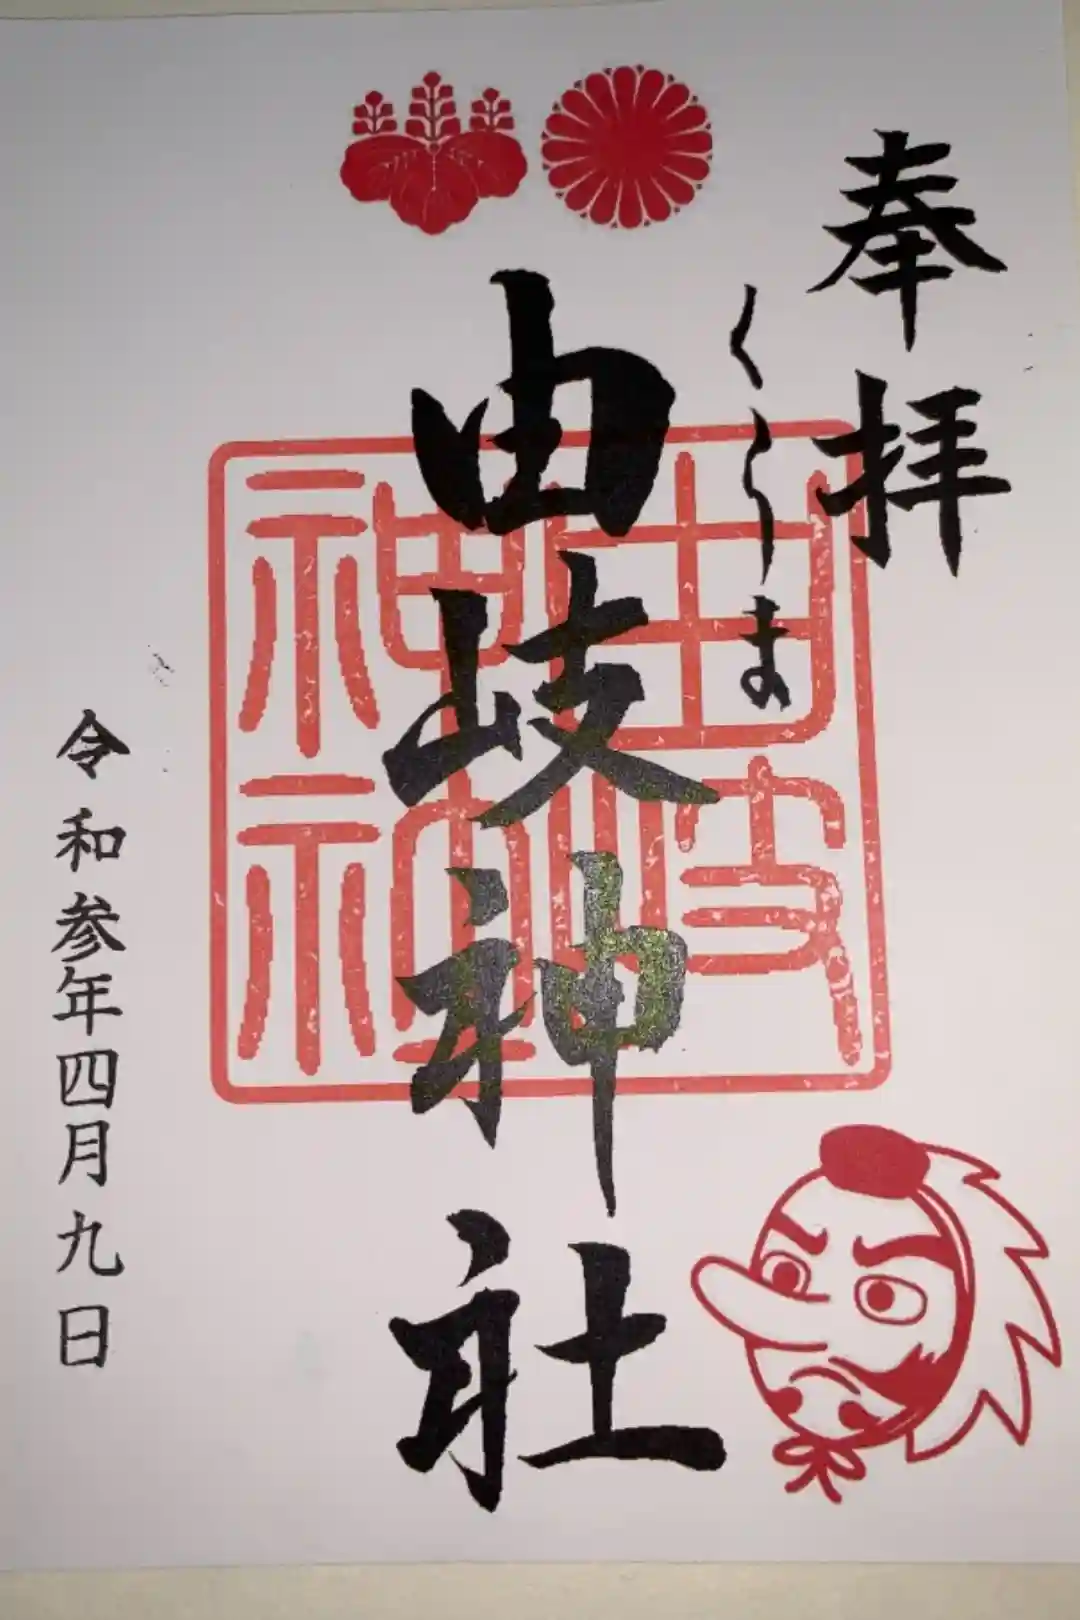 奉拝
くらま
由岐神社
由岐
神社
令和参年四月九日